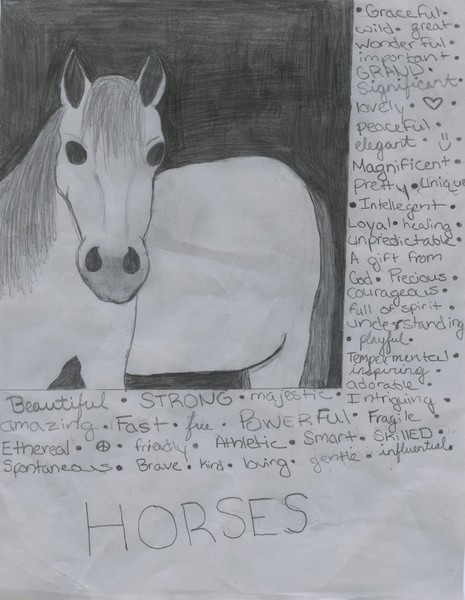 • Graceful •
wild • great •
wonderful •
important •
GRAND •
Significant •
lovely • ♡ •
peaceful •
elegant • ☺
Magnificent •
Pretty • Unique
• Intellegent •
Loyal • healing •
unpredictable •
A gift from
God • Precious •
Courageous •
full of spirit •
understanding
• playful •
Tempermental •
inspiring •
adorable •
Beautiful • STRONG • majestic • Intriguing
amazing • Fast • free • POWERFul • Fragile •
Ethereal • ☮ • friendly • Athletic • Smart • SKILLED •
Spontaneous • Brave • kind • loving • gentle • influential •
HORSES